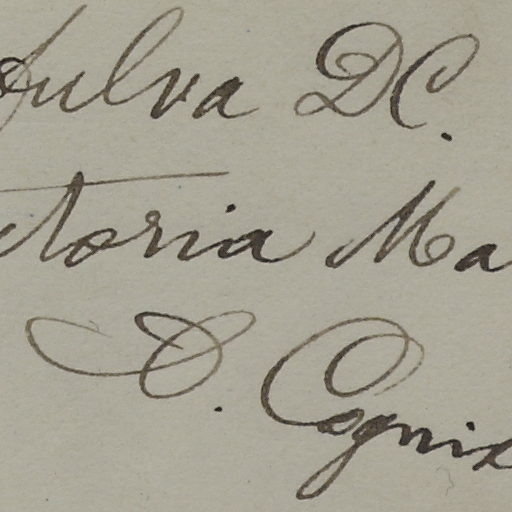 fulva DC.
ctoria Ma
A. Cognix